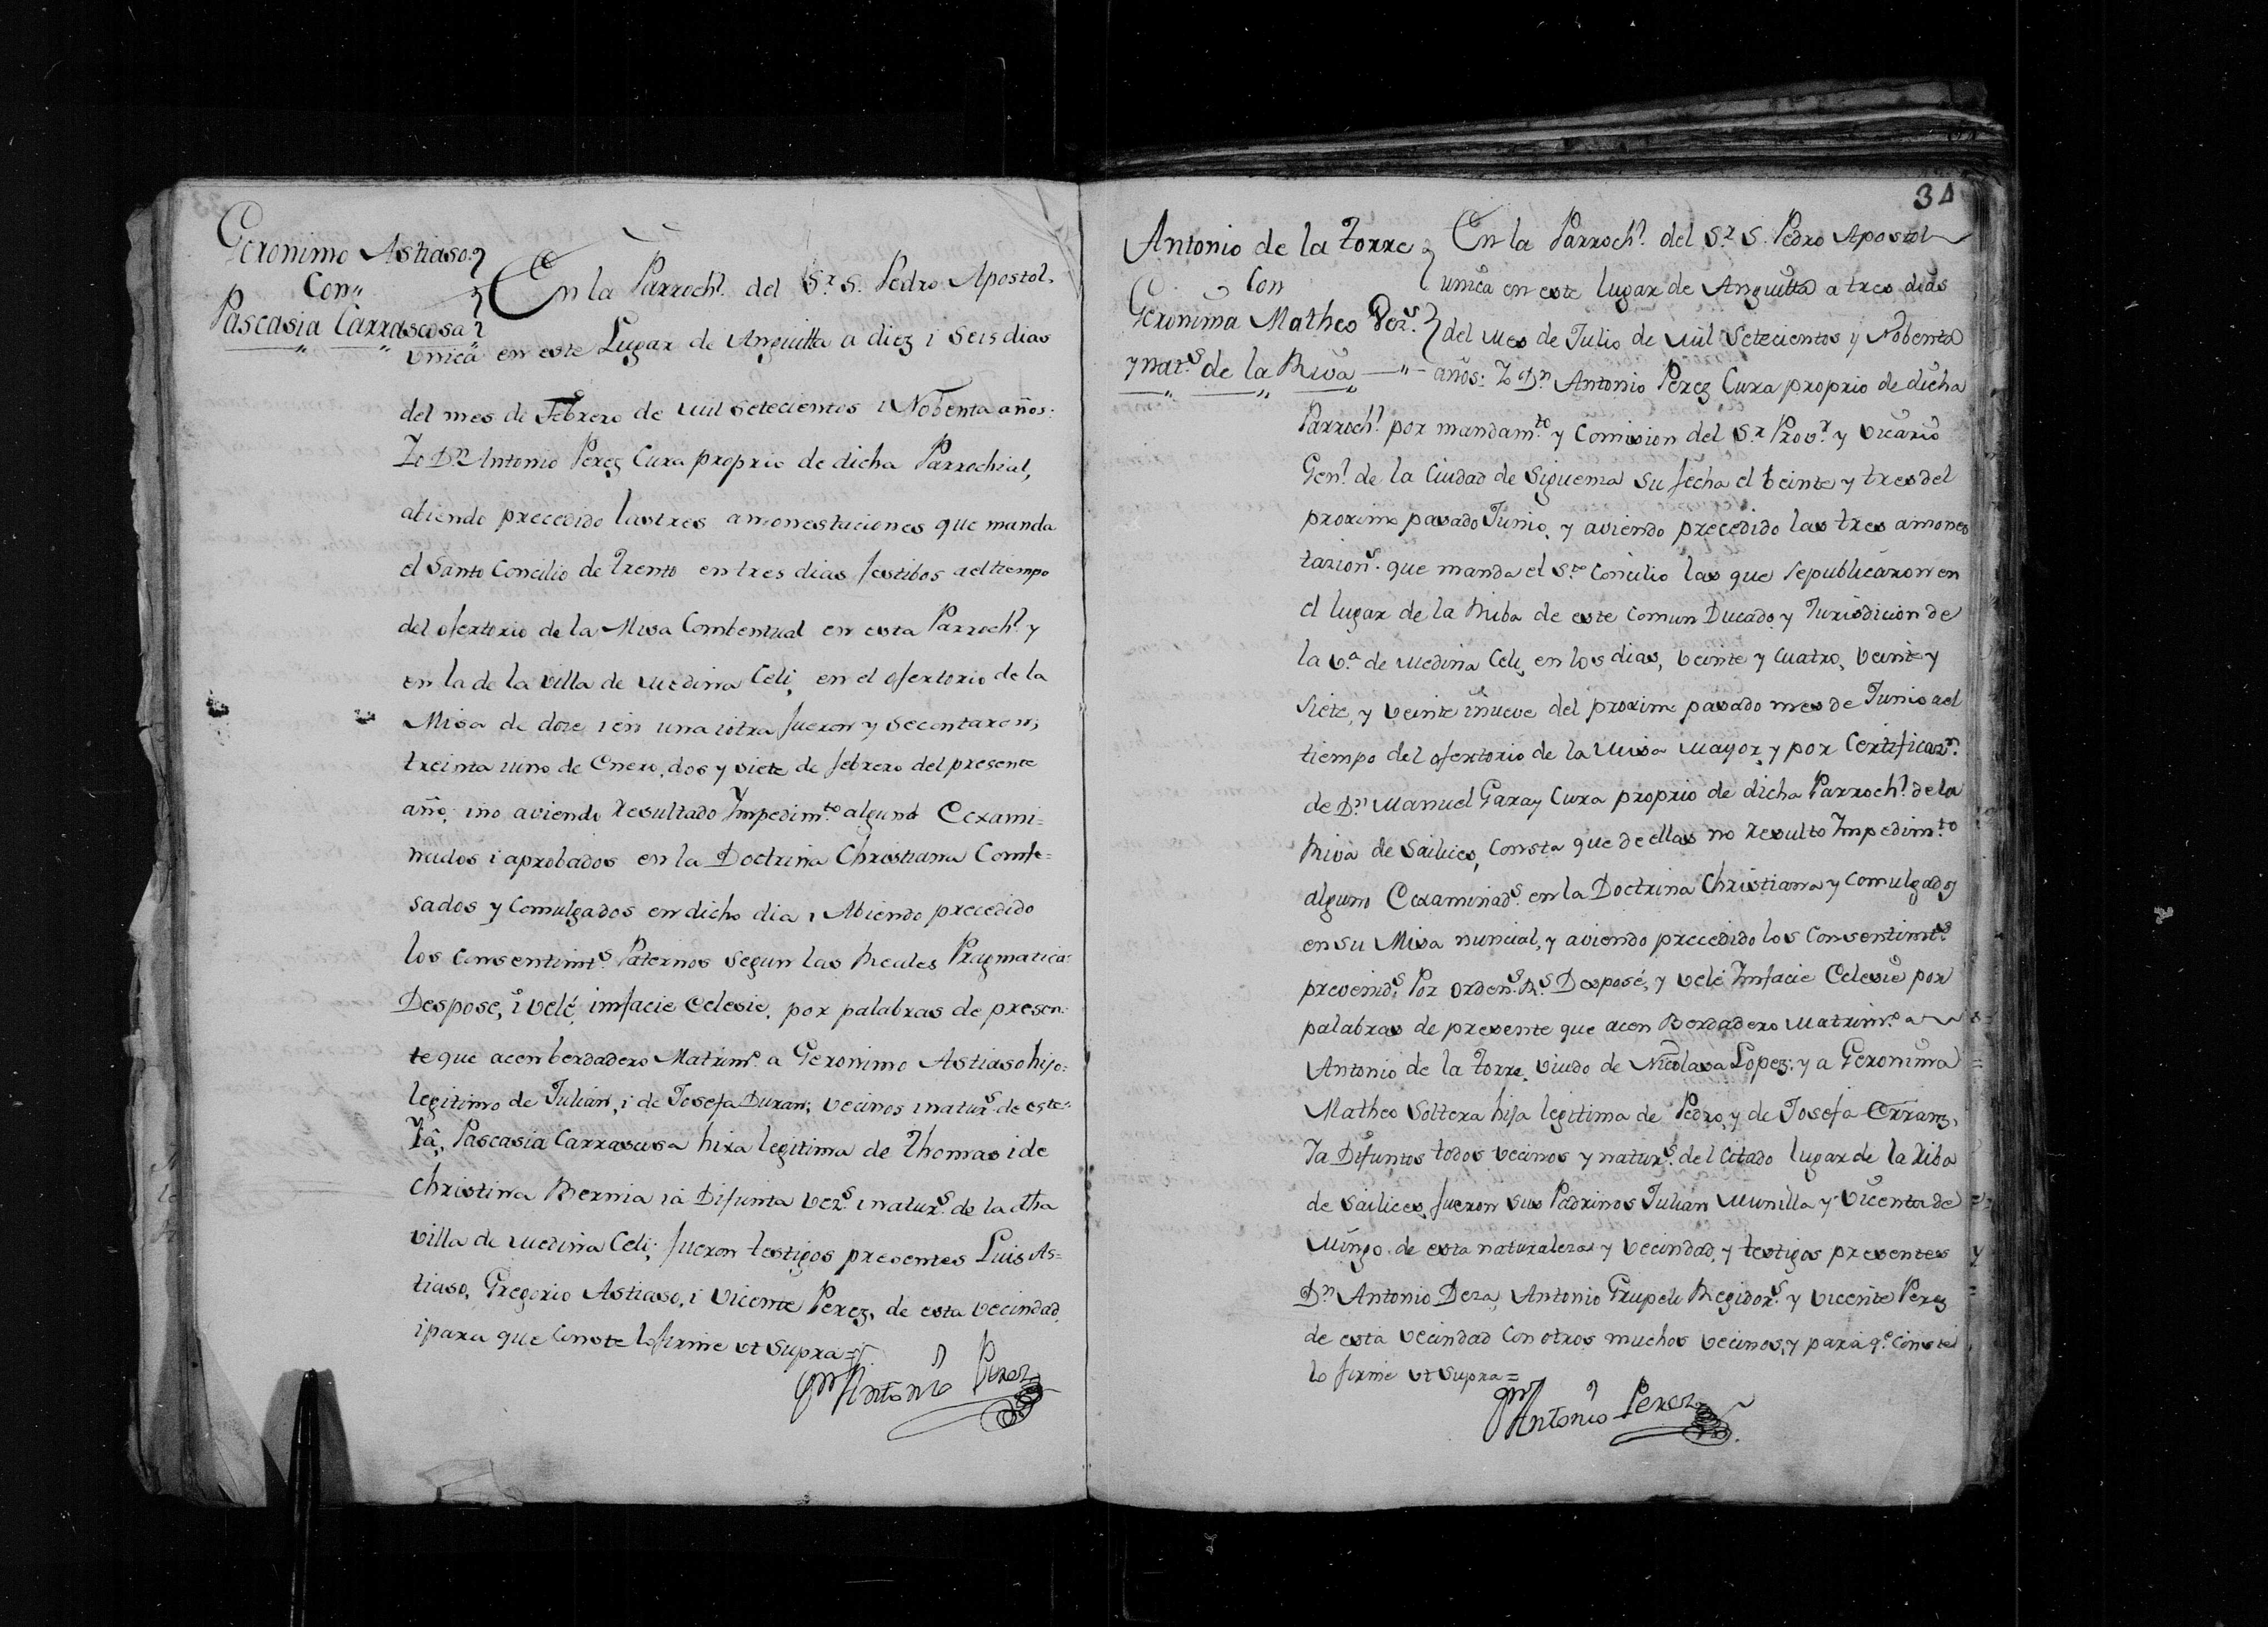 Geronimo Astiaso
Con
Pascasia Carrascosa
En la Parroch.l del S.r S. Pedro Apostol,
Unica en este Lugar de Anguitta a diez i seis dias
del mes de Febrero de mil setecientos i Nobenta años:
Yo D.n Antonio Perez Cura proprio de dicha Parrochial,
abiendo precedido las tres amonestaciones que manda
el Santo Concilio de trento en tres dias festibos a el tiempo
del ofertorio de la Misa Combentual en esta Parroch.l y
en la de la villa de Medina Celi, en el ofertorio de la
Misa de doze, i en una i otra fueron y se contaron,
treinta i uno de Enero, dos y siete de febrero del presente
año; i no aviendo resultado Impedim.to alguno Eexami=
nados i aprobados en la Doctrina Christiana Comfe=
sados y Comulgados en dicho dia i Abiendo precedido
los Consentimt.s Paternos segun las Reales Pragmatica:
Despose, i velé, imfacie eclesie, por palabras de presen:
te que acen berdadero Matrim.o a Geronimo Astiaso hijo:
legitimo de Julian, i de Josefa Duran; vecinos i natur.s de este:
Ya, Pascasia Carrascosa hixa legitima de Thomas i de
Christina Bernia ia Difunta vez.s i natur.s de la dha
villa de Medina Celi; fueron testigos presentes Luis As=
tiaso, Gregorio Astiaso, i Vicente Perez, de esta vecindad,
i para que Conste lo firme ut supra=
D.n Antonio Perez
34
Antonio de la Torre
Con
Geronima Matheo Vez.s
y nat.s de la Riva
En la Parroch.l del S.r S. Pedro Apostol
unica en este lugar de Anguitta a tres dias
del mes de Julio de mil Setecientos y Nobenta
años: Yo D.n Antonio Perez Cura proprio de dicha
Parroch.l por mandam.to y Comision del S.r Prov.r y Vicario
Gen.l de la Ciudad de Siguenza su fecha el beinte y tres del
proximo pasado Junio, y aviendo precedido las tres amones
tazion.s que manda el S.to Concilio las que se publicaron en
el lugar de la Riba de este Comun Ducado y Jurisdicion de
la V.a de Medina Celi, en los dias, veinte y Cuatro, veinte y
siete, y veinte i nueve del proximo pasado mes de Junio a el
tiempo del ofertorio de la Misa Mayor, y por Certificaz.n
de D.n Manuel Garay Cura proprio de dicha Parroch.l de la
Riva de Sailices, Consta que de ellas no resulto Impedim.to
alguno Eexaminad.s en la Doctrina Christiana y Comulgados
en su Misa nuncial, y aviendo precedido los Consentimt.s
prevenid.s Por orden.s R.s Desposé, y velé Imfacie Eclesie por
palabras de presente que acen Berdadero Matrim.o a
Antonio de la Torre, viudo de Nicolasa Lopez; y a Geronima
Matheo Soltera hija legitima de Pedro, y de Josefa Erranz,
Ya Difuntos todos vecinos y natur.s del Citado lugar de la Riba
de Sailices, fueron sus Padrinos Julian Munilla y Vicenta de
Mingo de esta naturaleza y vecindad, y testigos presentes
D.n Antonio Deza, Antonio Grupeli Regidor.s y Vicente Perez
de esta vecindad con otros muchos vecinos, y para q.e Conste
lo firme ut supra=
D.n Antonio Perez